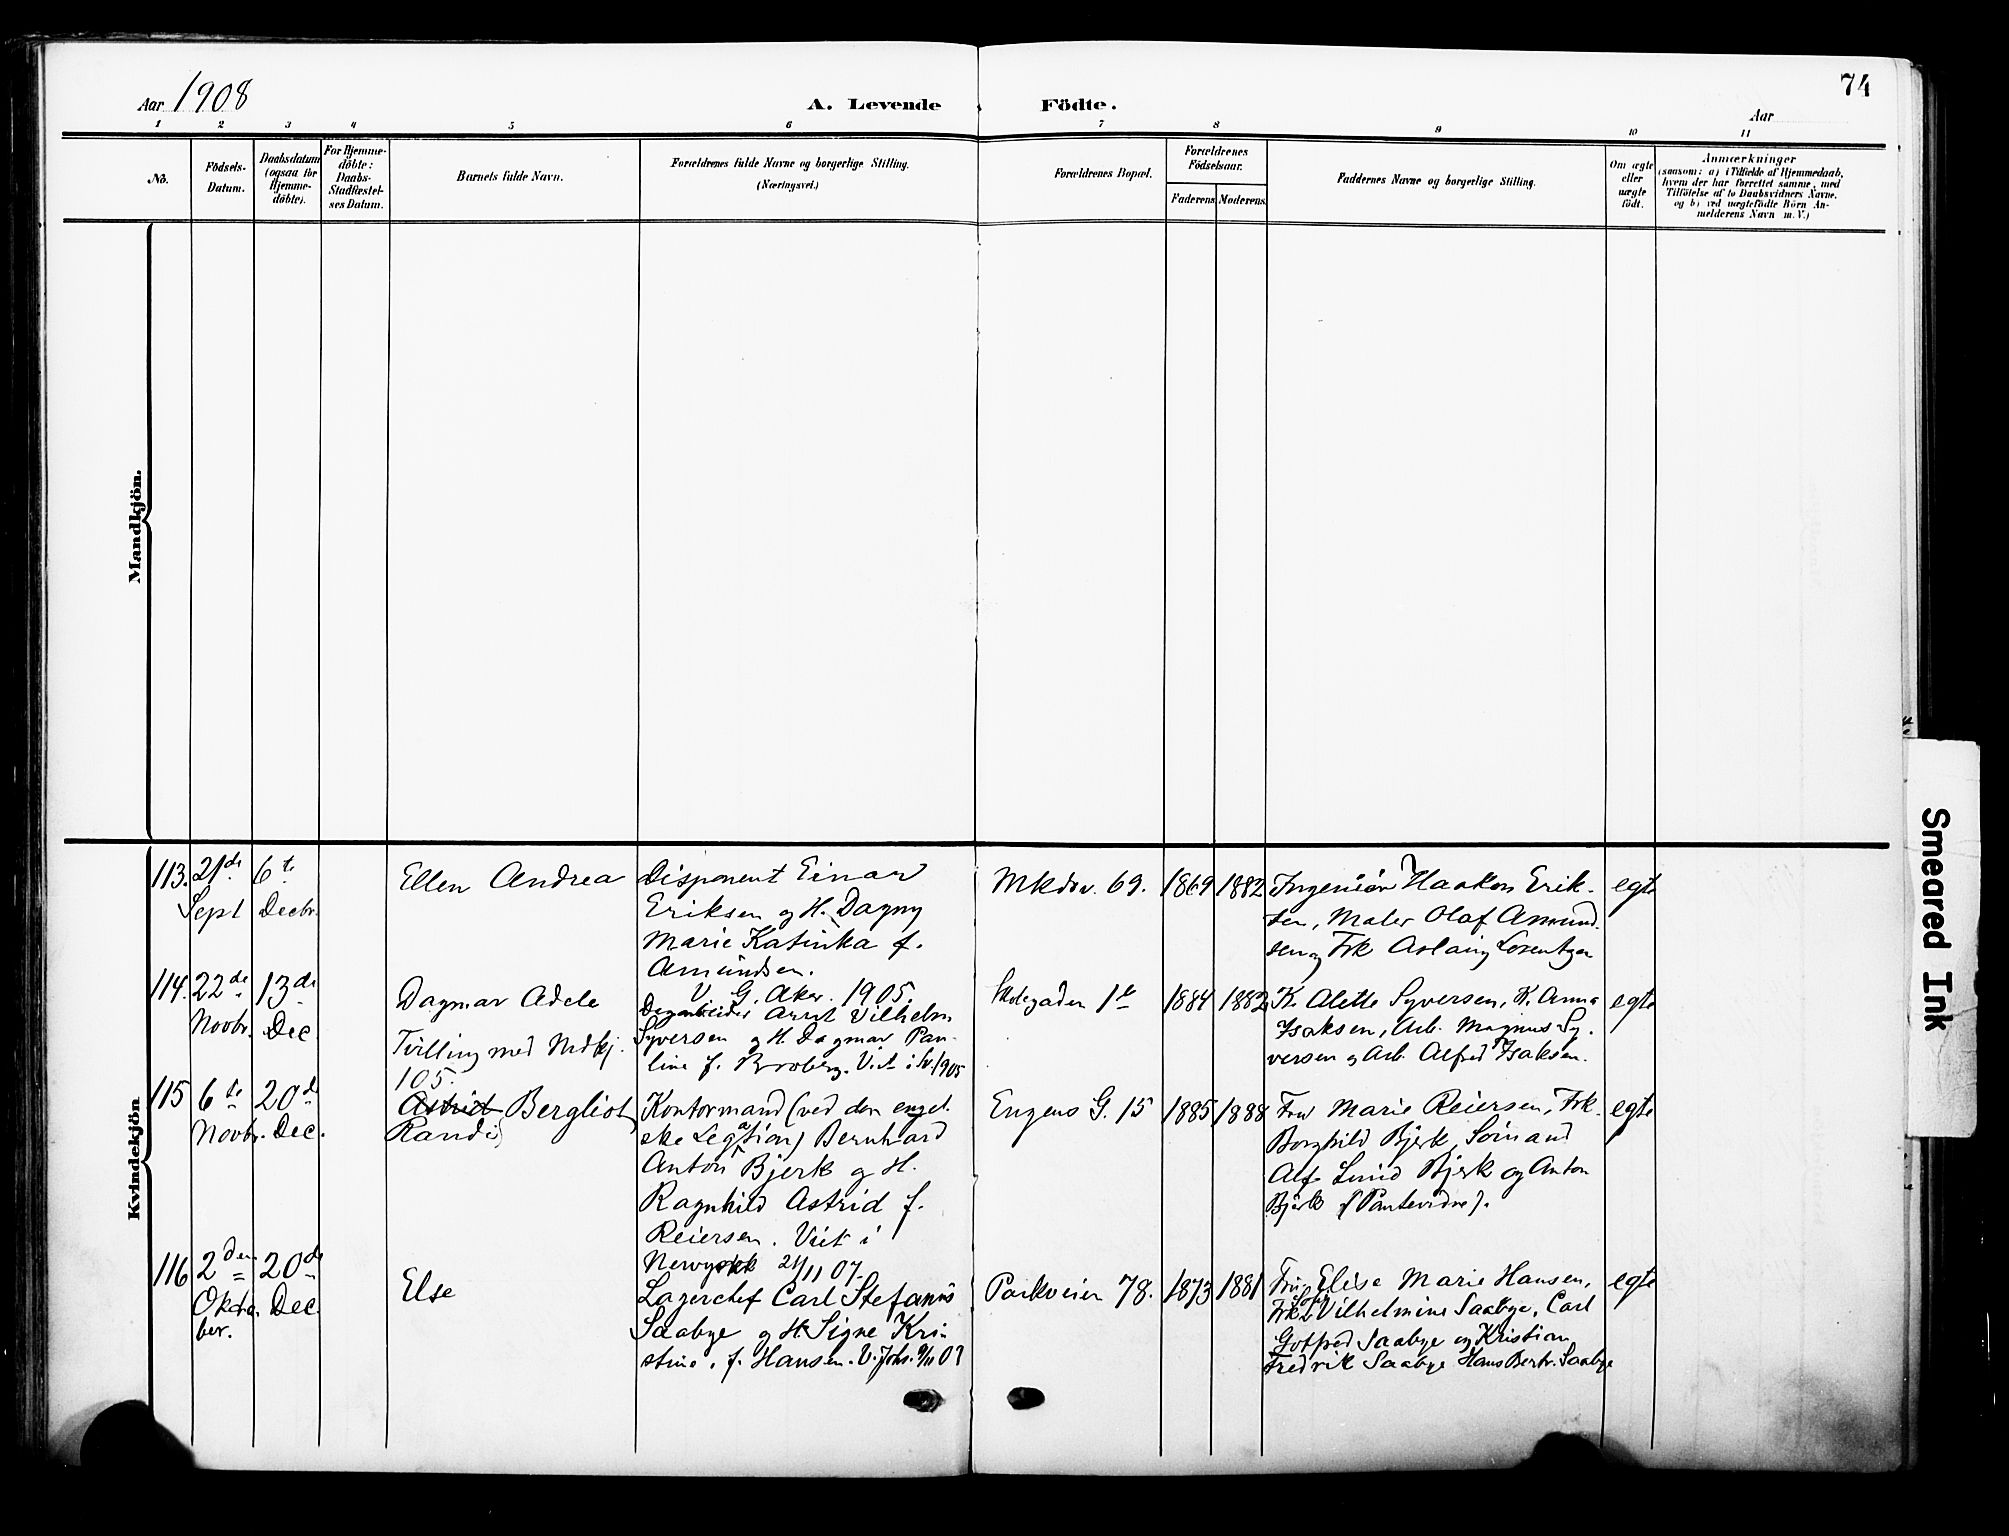 Aar 1908
A. Levende Födte.
74
Aar
1 2 3 4 5 6 7 8 9 10 11
No.
Födsels-
Datum.
Daabsdatum
(ogsaa for
Hjemme-
döbte).
For Hjemme-
döbte:
Daabs-
Stadfæstel-
ses Datum.
Barnets fulde Navn.
Forældrenes fulde Navne og borgerlige Stilling.
(Næringsvei.)
Forældrenes Bopæl.
Forældrenes
Födselsaar.
Faderens. Moderens.
Faddernes Navne og borgerlige Stilling.
Om ægte
eller
uægte
födt.
Anmærkninger
(saasom: a) i Tilfælde af Hjemmedaab,
hvem der har forrettet samme, med
Tilföielse af to Daabsvidners Navne,
og b) ved uægtefödte Börn An-
melderens Navn m.V.)
Mandkjön.
Kvindekjön
113. 21de
Sept
6te
Decbr.
Ellen Andrea
Disponent Einar
Eriksen og H. Dagny
Marie Katinka f.
Amundsen.
V. G. Aker. 1905.
Mkdsv. 69.
1869 1882
Ingeniør Haakon Erik-
sen, Maler Olaf Amund-
sen og Frk Aslaug Lorentzen
egte
114. 22de
Novbr.
13de
Dec
Dagmar Adele
Tvilling med Mdkj.
105.
Dagarbeider Arnt Vilhelm
Syversen og H. Dagmar Pau-
line f. Broberg. Viet i 1905
Skolegaden 1
1884 1882
K. Alette Syversen, K. Anna
Isaksen, Arb. Magnus Sy-
versen og Arb. Alfred Isaksen.
egte
115 6te
Novbr.
20de
Dec.
Astrid Bergliot
Randi
Kontormand (ved den engel-
ske Legation) Bernhard
Anton Bjerk og H.
Ragnhild Astrid f.
Reiersen. Viet i
Newyork 21/11 07.
Engens G. 15
1885 1888
Fru Marie Reiersen, Frk.
Borghild Bjerk, Sømand
Alf Lund Bjerk og Anton
Bjerk
egte
116 2den
Okto-
ber.
20de
Dec.
Else
Lagerchef Carl Stefanus
Saabye og H. Signe Kri-
stine, f. Hansen. V. Johs. 9/11 07
Parkveien 78.
1873 1881
Fru Elise Marie Hansen,
Frk Vilhelmine Saabye, Carl
Gotfred Saabye og Kristian
Fredrik Saabye Hans Bertr. Saabye
egte
Smeared Ink